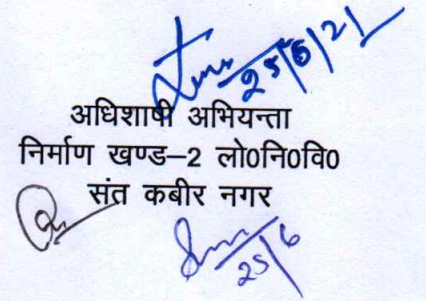 25/6/21
अधिशाषी अभियन्ता
निर्माण खण्ड–2 लो0नि0वि0
संत कबीर नगर
25/6